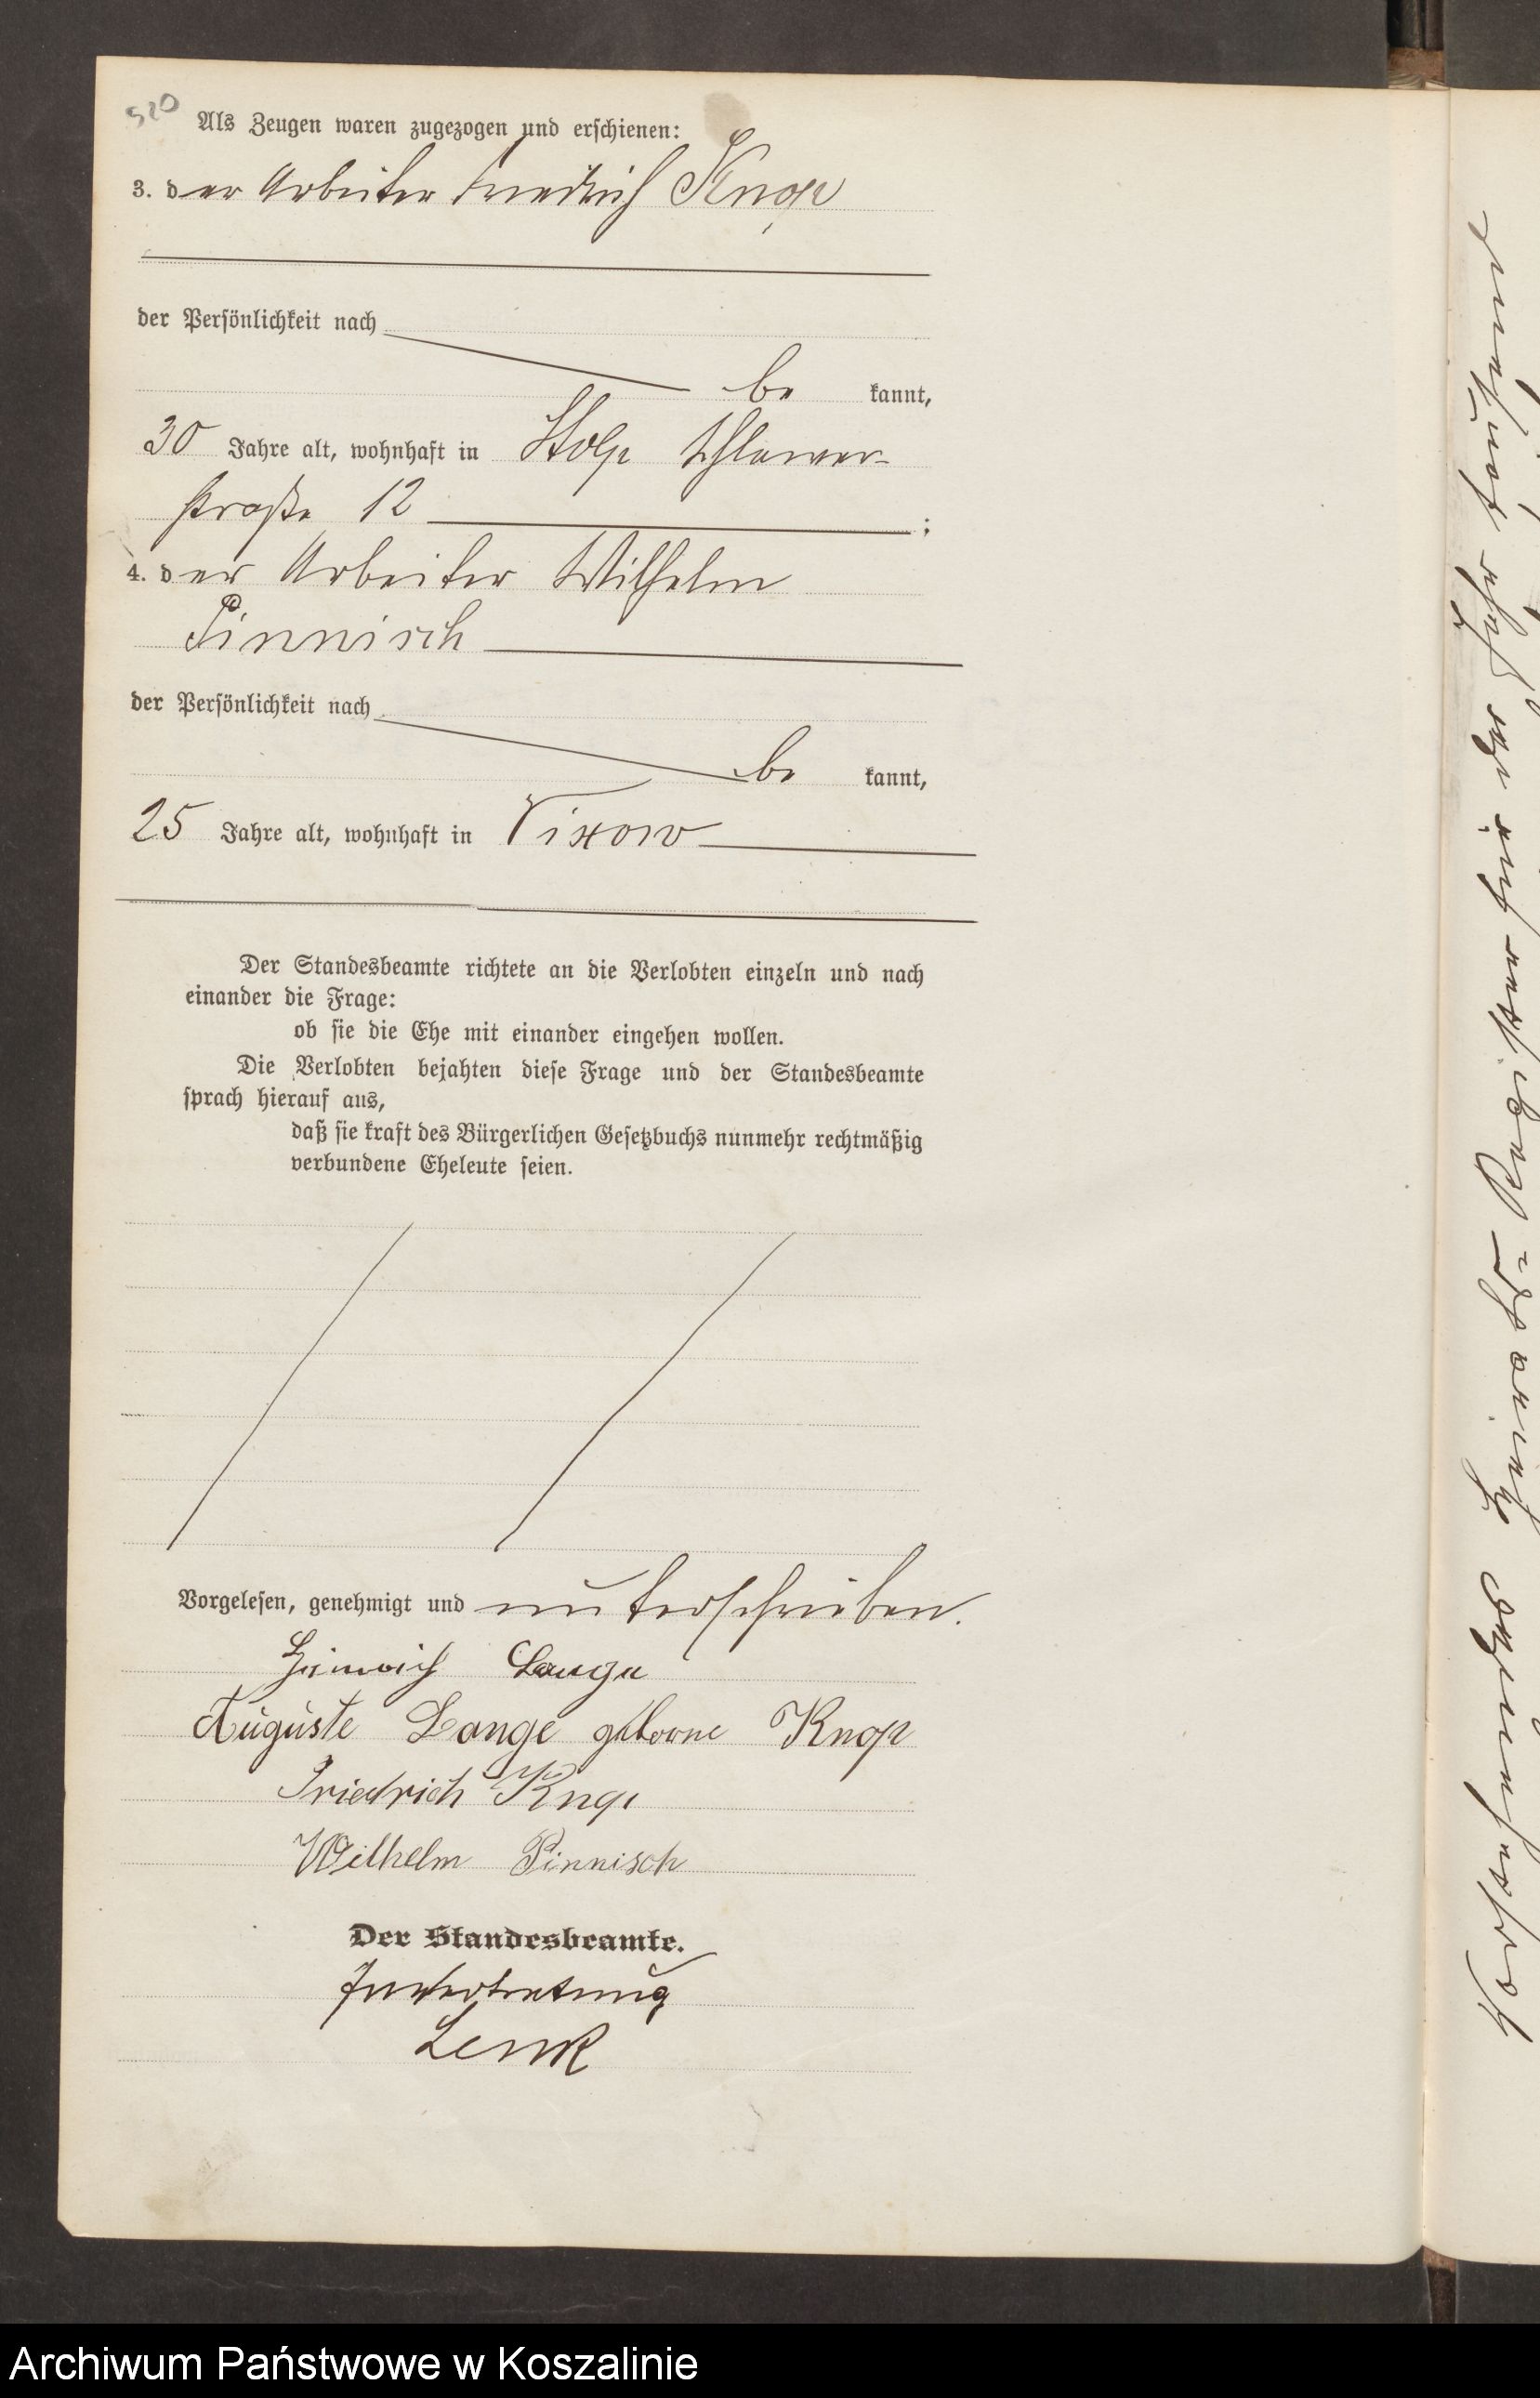 520
Als Zeugen waren zugezogen und erschienen:
3. der Arbeiter Friedrich Knop
der Persönlichkeit nach
be kannt,
30 Jahre alt, wohnhaft in Stolp Schlawer-
straße 12 ;
4. der Arbeiter Wilhelm
Pinnisch
der Persönlichkeit nach
be kannt,
25 Jahre alt, wohnhaft in Vixow
Der Standesbeamte richtete an die Verlobten einzeln und nach
einander die Frage:
ob sie die Ehe mit einander eingehen wollen.
Die Verlobten bejahten diese Frage und der Standesbeamte
sprach hierauf aus,
daß sie kraft des Bürgerlichen Gesetzbuchs nunmehr rechtmäßig
verbundene Eheleute seien.
Vorgelesen, genehmigt und unterschrieben.
Heinrich Lange
Auguste Lange geborne Knop
Friedrich Knop
Wilhelm Pinnisch
Der Standesbeamte.
In Vertretung
Lenk
Archiwum Państwowe w Koszalinie